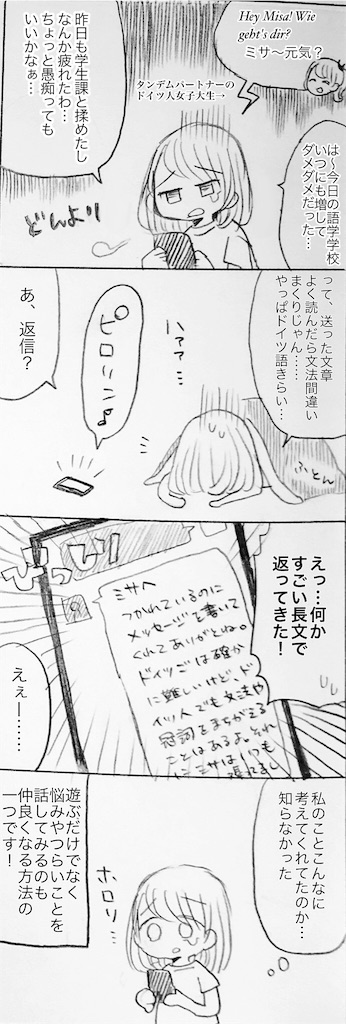 Hey Misa! Wie
geht's dir?
ミサ〜元気？
タンデムパートナーの
ドイツ人女子大生→
は〜今日の語学学校
いつにも増して
ダメダメだった…
昨日も学生課と揉めたし
なんか疲れたわ…
ちょっと愚痴っても
いいかなぁ…
どんより
って、送った文章
よく読んだら文法間違い
まくりじゃん……
やっぱドイツ語きらい…
ふとん
ピロリン♪
あ、返信？
えっ…何か
すごい長文で
返ってきた！
びっしり
ミサへ
つかれているのに
メッセージを書いて
くれてありがとね。
ドイツごは確か
に難しいけど、ド
イツ人でも文法や
冠詞をまちがえる
ことはあるよ。それ
にミサはいつも
えぇー……
私のことこんなに
考えてくれてたのか…
知らなかった
ホロリ…
遊ぶだけでなく
悩みやつらいことを
話してみるのも
仲良くなる方法の
一つです！